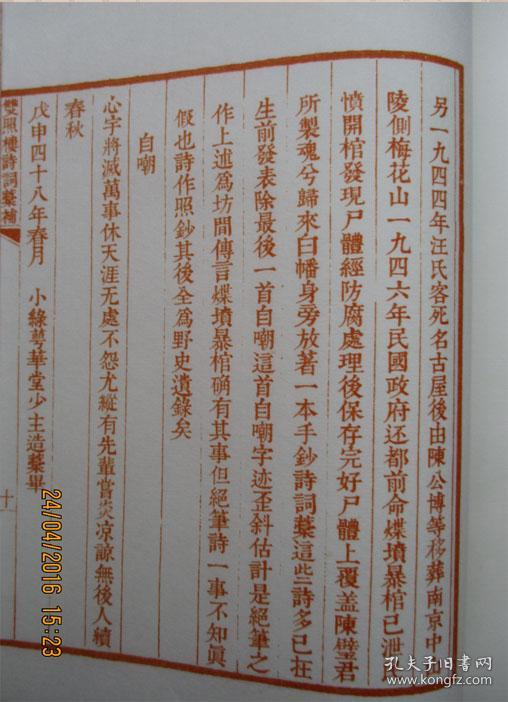 另一九四四年汪氏客死名古屋後由陳公博等移葬南京中山
陵側梅花山一九四六年民國政府还都前命煠墳暴棺已泄
憤開棺發現尸體經防腐處理後保存完好尸體上覆盖陳璧君
所製魂兮歸來白幡身旁放著一本手鈔詩詞藁這些詩多已在
生前發表除最後一首自嘲這首自嘲字迹歪斜估計是絕筆之
作上述為坊間傳言煠墳暴棺确有其事但絕筆詩一事不知真
假也詩作照鈔其後全為野史遺録矣
自嘲
心字將滅萬事休天涯无處不怨尤縱有先輩嘗炎凉諒無後人續
春秋
戊申四十八年春月 小綠萼華堂少主造藁畢
雙照樓詩詞藁補
十
24/04/2016 15:23
孔夫子旧书网
www.kongfz.com